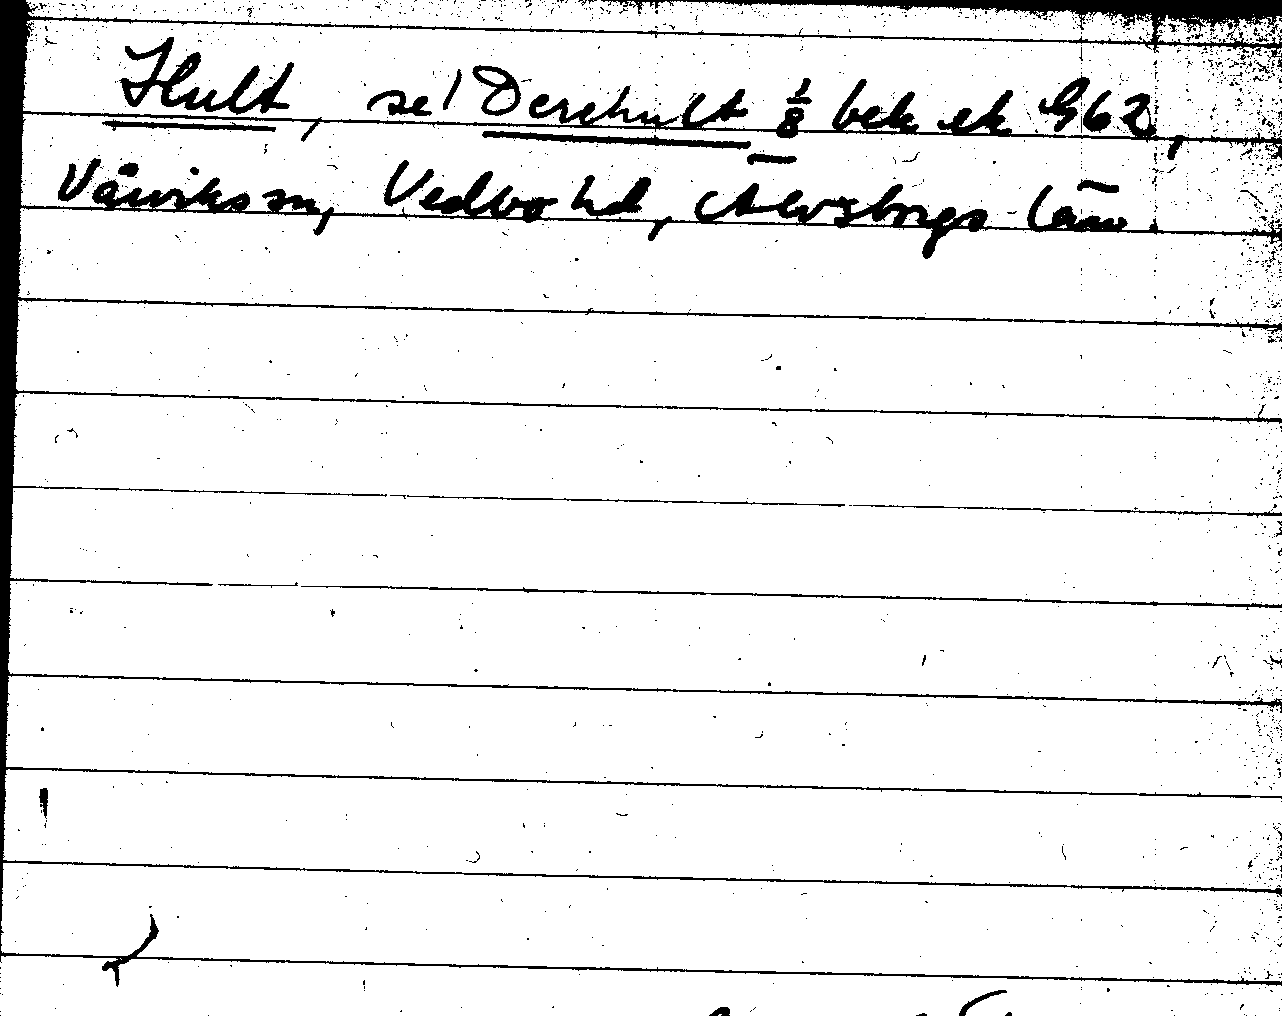 Hult, se/ Dersehult 1/8 bek ek G62,
Vårviks sn, Vedbo hd, Älvsborgs län.